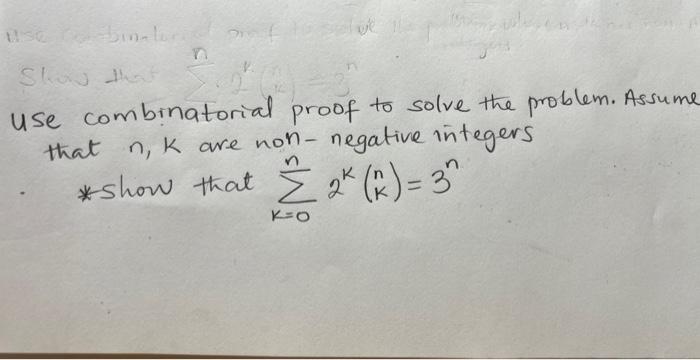 Show that n∑ 2^k (n k) = 3^n
use combinatorial proof to solve the problem. Assume
that n, k are non-negative integers
. *show that n∑k=0 2^k (n k) = 3^n